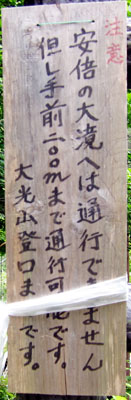 注意
安倍の大滝へは通行できません
但し手前二〇〇mまで通行可能です。
大光山登口まです。